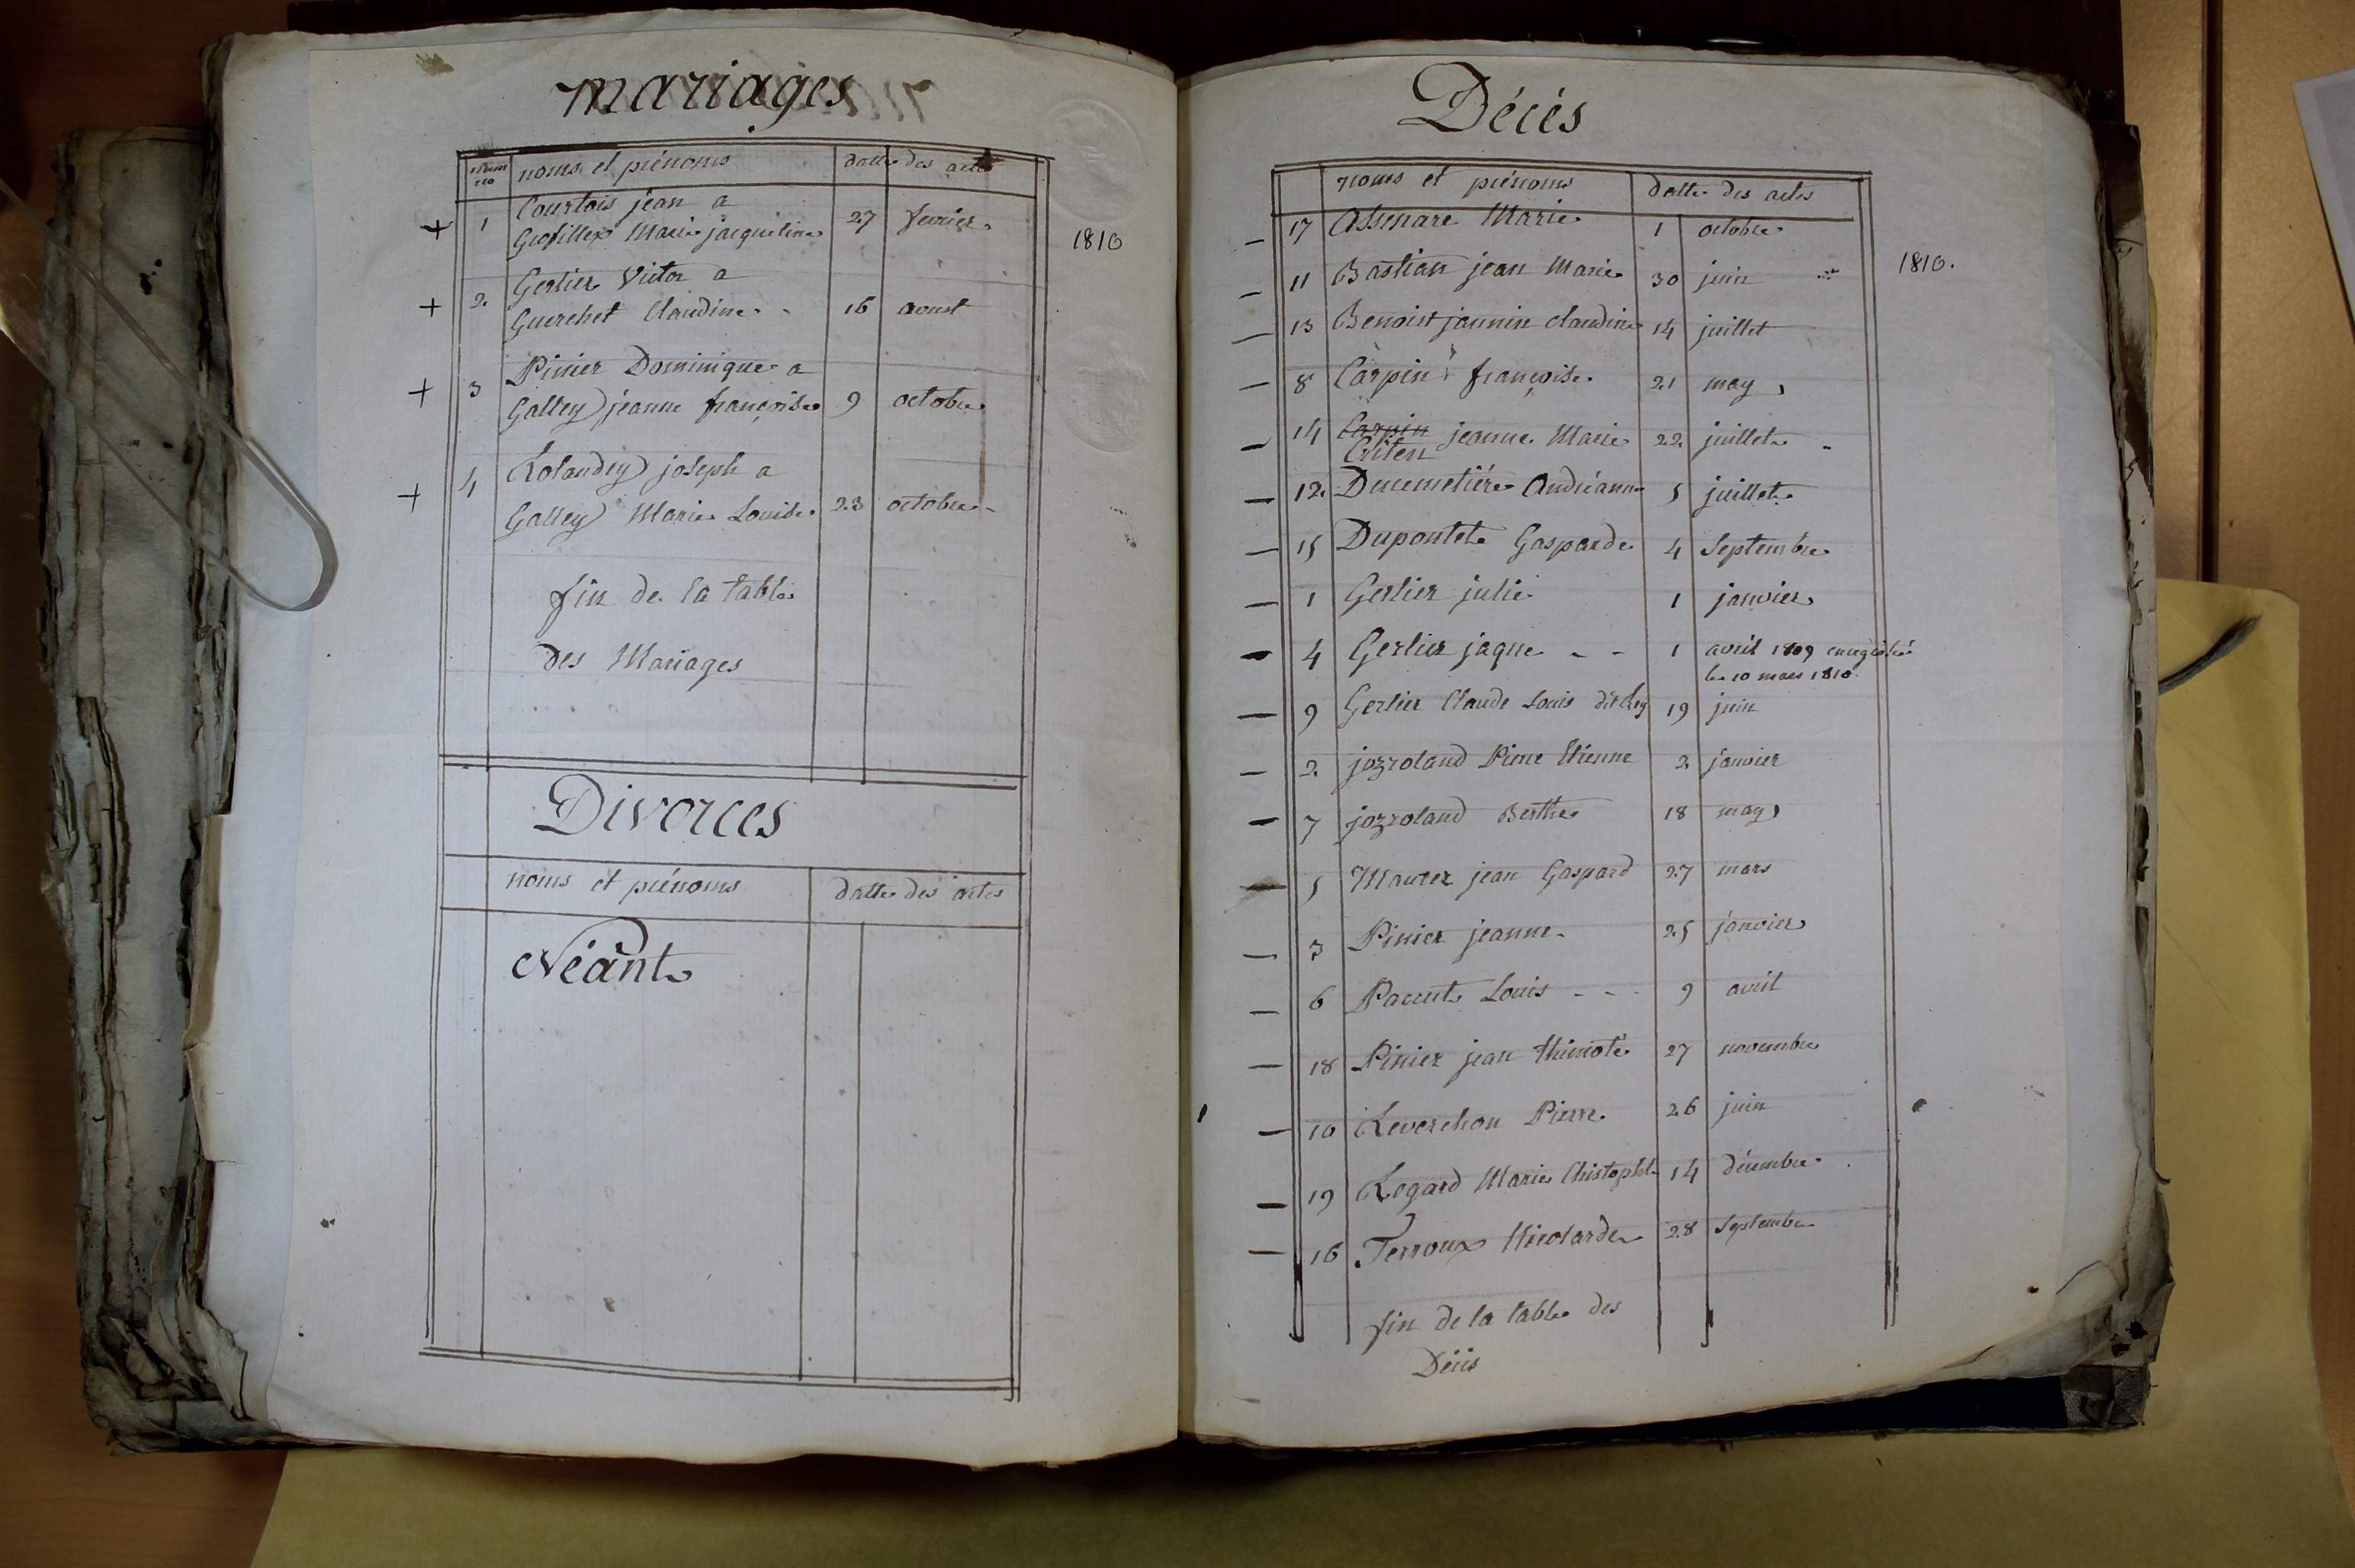 mariages
noms et prénoms datte des actes
1810
+ 1 Courtois jean a
Grosillex Marie jacqueline 27 fevrier
+ 2 Gerlier Victor a
Guerchet Claudine 16 aoust
+ 3 Pinier Dominique a
Galley jeanne françoise 9 octobre
+ 4 Rolandey joseph a
Galley Marie Louise 23 octobre
fin de la table
des Mariages
Divorces
noms et prénoms datte des actes
Néant
Décés
noms et prénoms datte des actes
1810.
17 Assenare Marie 1 octobre
11 Bastian jean Marie 30 juin
13 Benoist jannin claudine 14 juillet
8 Carpin françoise 21 may
14 Carpin jeanne Marie 22 juillet
Criten
12 Ducimetière Andrianne 5 juillet
15 Dupontet Gasparde 4 Septembre
1 Gerlier julie 1 janvier
4 Gerlier jaque 1 avril 1809 enregistré
le 10 mars 1810
9 Gerlier Claude Louis dit Rey 19 juin
2 jozroland Pierre Etienne 2 janvier
7 jozroland Berthe 18 may
5 Maurer jean Gaspard 27 mars
3 Pinier jeanne 25 janvier
6 Paccut Louis 9 avril
18 Pinier jean thimoté 27 novembre
10 Reverchon Pierre 26 juin
19 Rogard Marie Christophle 14 décembre
16 Terroux Nicolarde 28 Septembre
fin de la table des
Décés